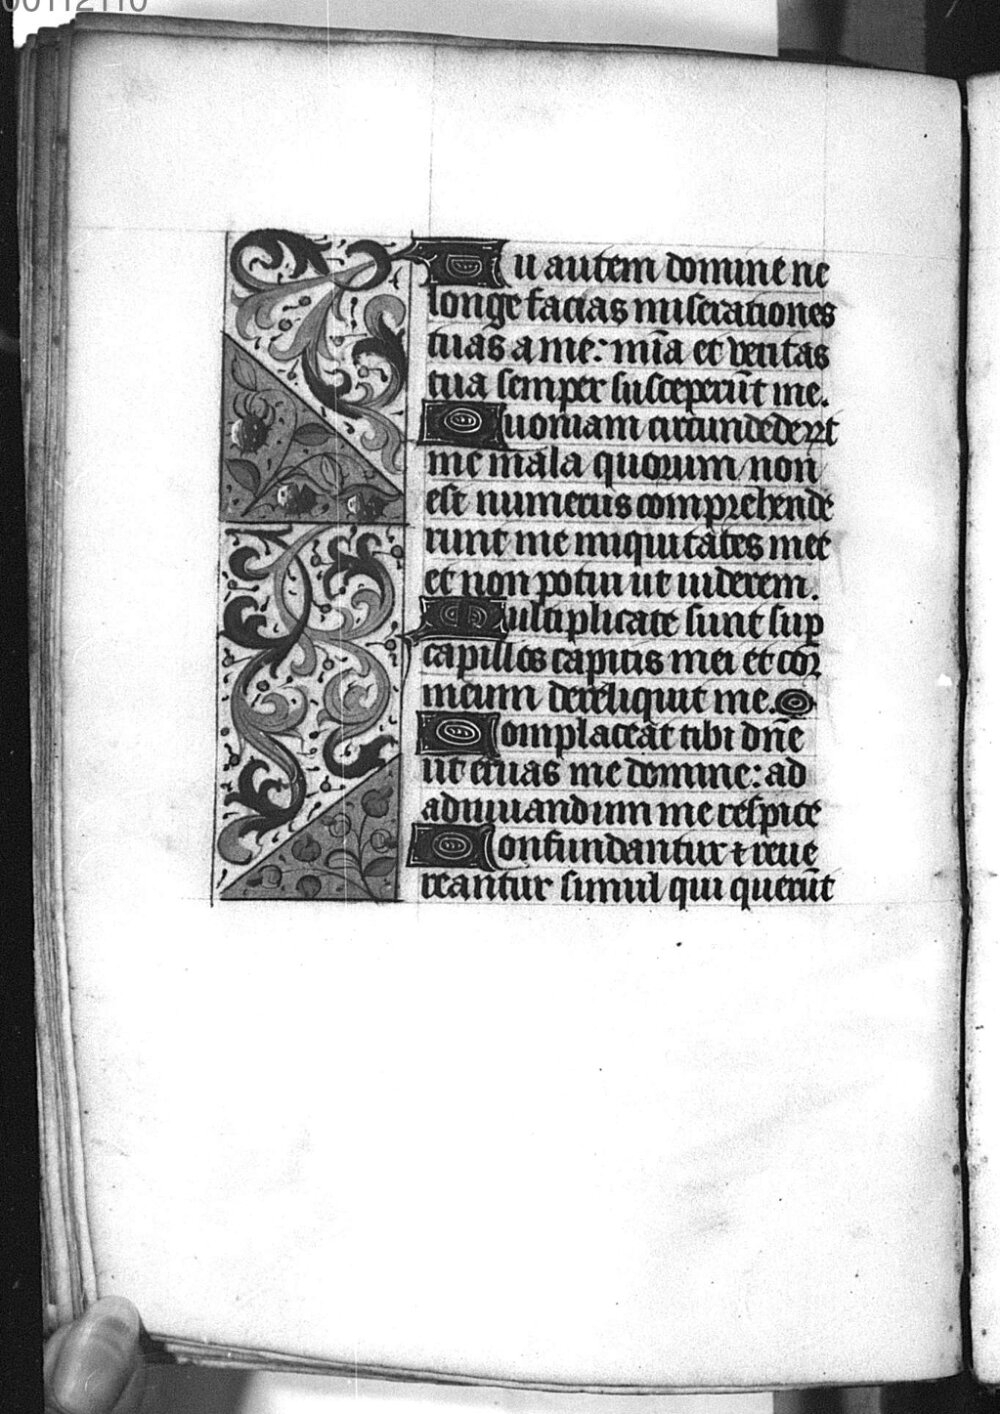 00112110
Tu autem domine ne
longe facias miserationes
tuas a me: mīa et veritas
tua semper susceperūt me.
Quoniam circundederūt
me mala quorum non
est numerus comprehende
runt me iniquitates mee
et non potui ut uiderem.
Multiplicate sunt sup
capillos capitis mei et cor
meum dereliquit me.
Complaceat tibi dn̄e
ut eruas me domine: ad
adiuuandum me respice
Confundantur ⁊ reue
reantur simul qui querūt